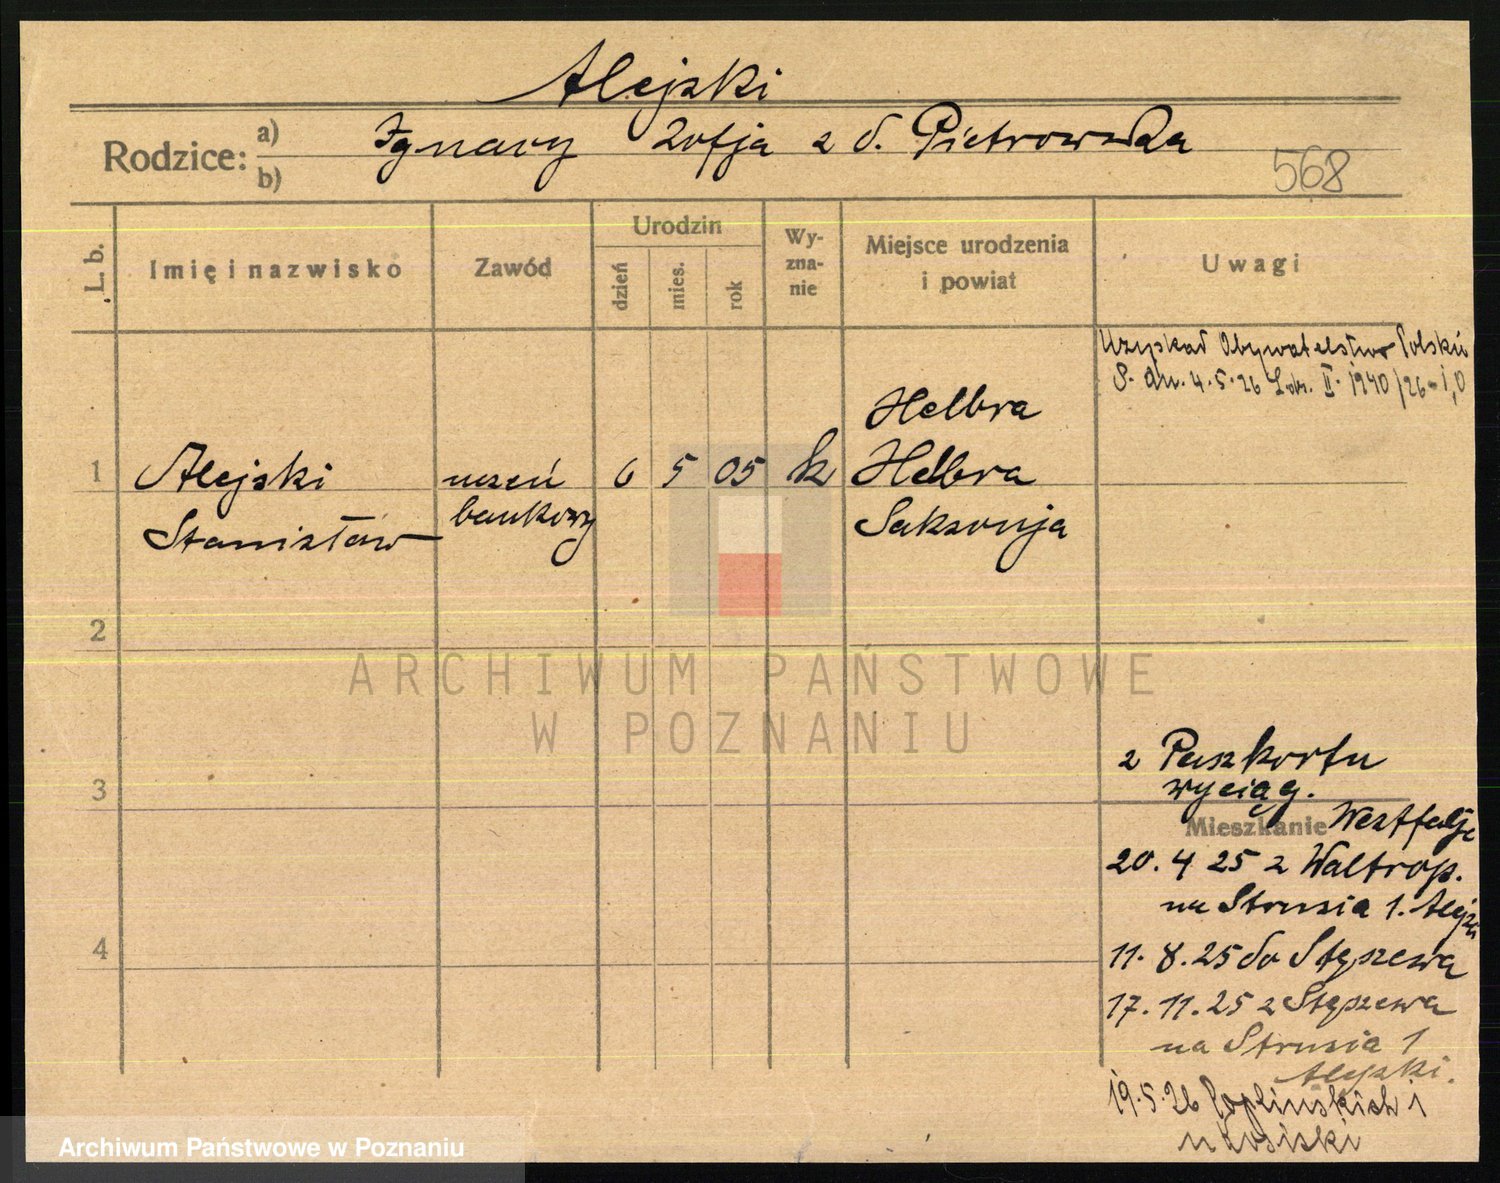 Alejski
Rodzice: a) b) Ignacy Zofja z d. Pietrowska
568
L. b. Imię i nazwisko Zawód Urodzin dzień mies. rok Wy-zna-nie Miejsce urodzenia i powiat Uwagi
Uzyskał Obywatelstwo Polskie
4.5.26 II. 1940/26
Helbra
1 Alejski uczeń 6 5 05 k Helbra
Stanisław bankowy Saksonja
2
ARCHIWUM PAŃSTWOWE
W POZNANIU
z Paszkortu
3
wyciąg.
Mieszkanie Westfalje
20. 4 25 z Waltrop.
na Strusia 1. Alejski
4
11. 8. 25 do Stęszewa
17. 11. 25 z Stęszewa
na Strusia 1
Alejski.
19.5.26
Archiwum Państwowe w Poznaniu